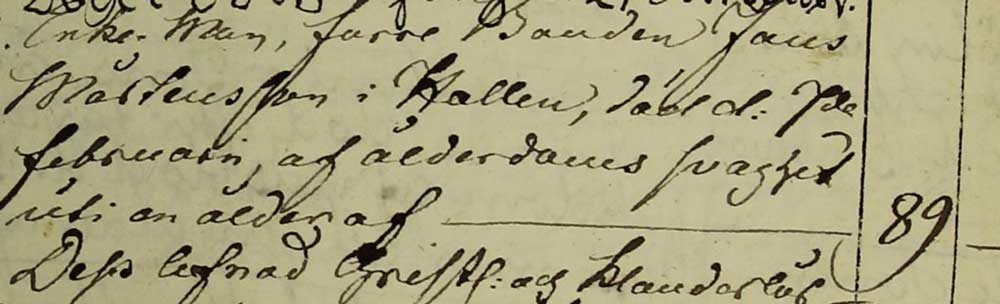 Enke-Man, förre Bonden Jöns
Mårtensson i Hallen, död d. 7de
februarii, af ålderdoms svaghet
uti en ålder af 89
Dess lefnad Christl: och klanderlös